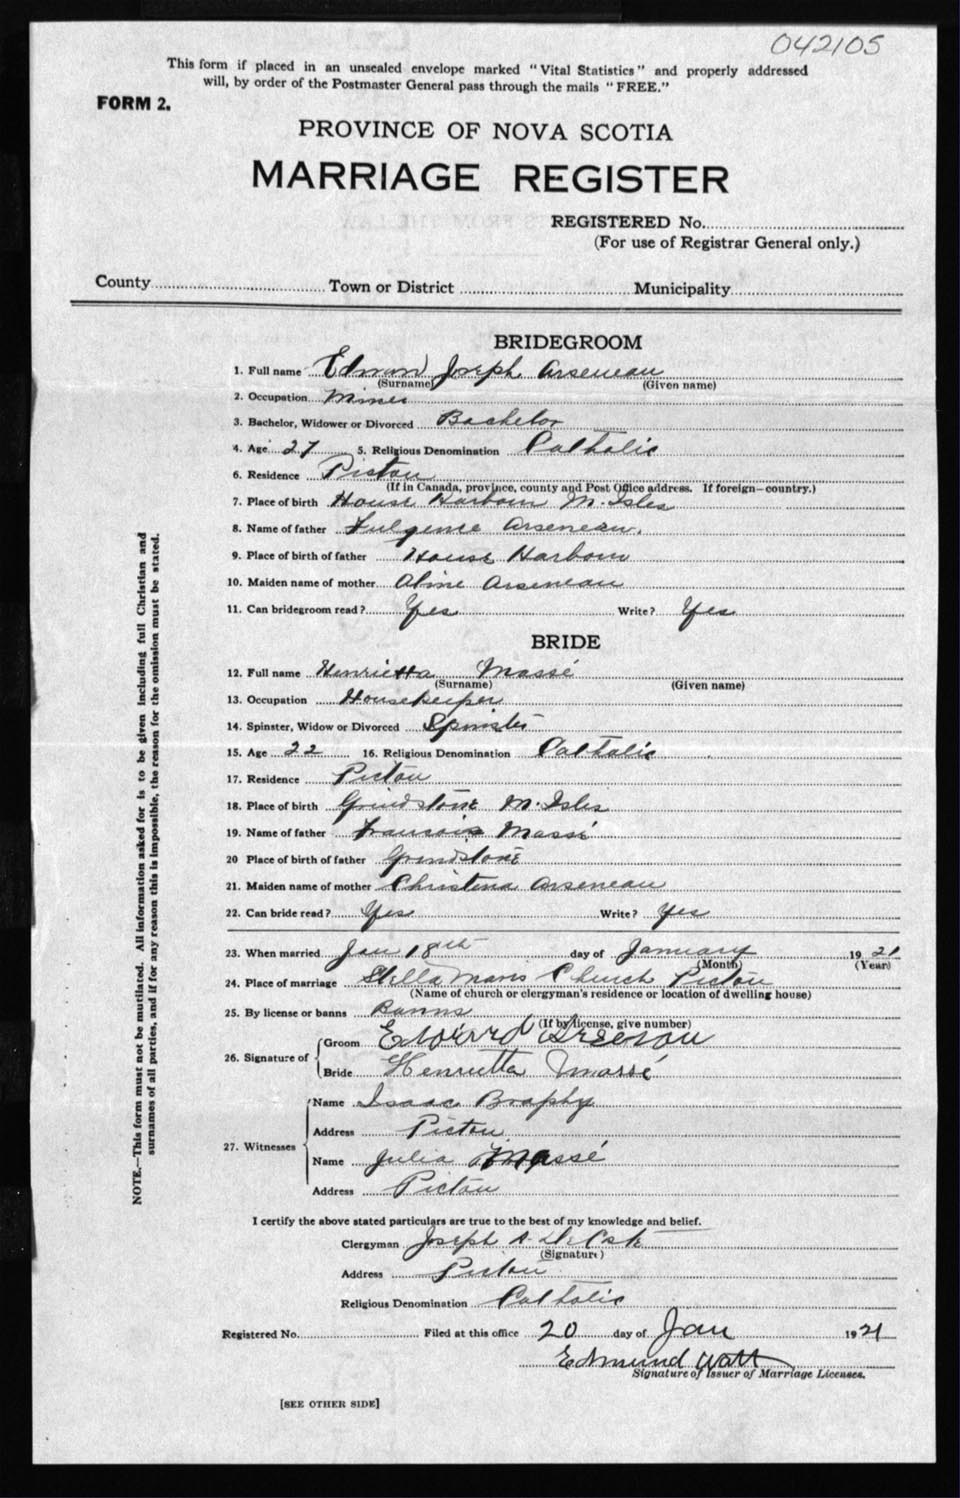 042105
This form if placed in an unsealed envelope marked "Vital Statistics" and properly addressed
will, by order of the Postmaster General pass through the mails "FREE."
FORM 2.
PROVINCE OF NOVA SCOTIA
MARRIAGE REGISTER
REGISTERED No.
(For use of Registrar General only.)
County Town or District Municipality
BRIDEGROOM
1. Full name Joseph Arseneau
(Surname) (Given name)
2. Occupation Miner
3. Bachelor, Widower or Divorced Bachelor
4. Age 27 5. Religious Denomination Catholic
6. Residence Pictou
(If in Canada, province, county and Post Office address. If foreign—country.)
7. Place of birth House Harbour M. Isles
8. Name of father Fulgence Arseneau.
9. Place of birth of father House Harbour
10. Maiden name of mother Arseneau
11. Can bridegroom read? Yes Write? Yes
BRIDE
12. Full name Henrietta Massé
(Surname) (Given name)
13. Occupation Housekeeper
14. Spinster, Widow or Divorced Spinster
15. Age 22 16. Religious Denomination Catholic
17. Residence Pictou
18. Place of birth Grindstone M. Isles
19. Name of father Francois Massé
20 Place of birth of father Grindstone
21. Maiden name of mother Christena Arseneau
22. Can bride read? Yes Write? Yes
23. When married Jan 18th day of January 1921
(Month) (Year)
24. Place of marriage Stella Maris Church Pictou
(Name of church or clergyman's residence or location of dwelling house)
25. By license or banns Banns
(If by license, give number)
26. Signature of
Groom
Bride Henrietta Massé
27. Witnesses
Name Isaac Brophy
Address Pictou
Name Julia Massé
Address Pictou
I certify the above stated particulars are true to the best of my knowledge and belief.
Clergyman Joseph A.
(Signature)
Address Pictou
Religious Denomination Catholic
Registered No. Filed at this office 20 day of Jan 1921
Edmund Watt
Signature of Issuer of Marriage Licenses.
[SEE OTHER SIDE]
NOTE.—This form must not be mutilated. All information asked for is to be given including full Christian and
surnames of all parties, and if for any reason this is impossible, the reason for the omission must be stated.